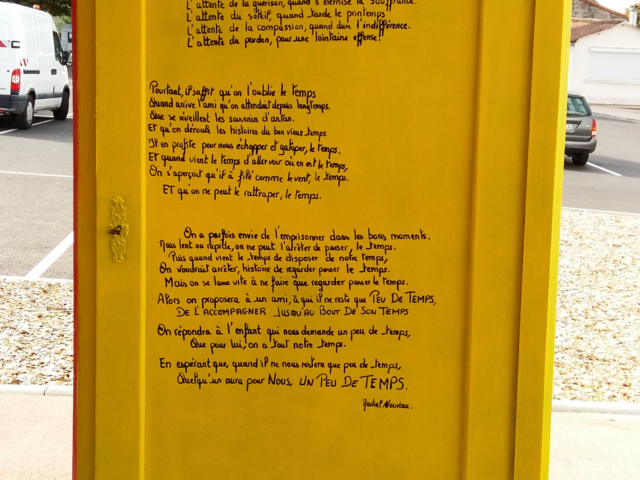 L'attente de la guérison, quand s'éternise la souffrance.
L'attente du soleil, quand tarde le printemps
L'attente de la compassion, quand dure l'indifférence.
L'attente du pardon, pour une lointaine offense!
Pourtant, il suffit qu'on l'oublie le temps
Quand arrive l'ami qu'on attendait depuis longtemps.
Que se réveillent les souvenirs d'antan.
Et qu'on déroule les histoires du bon vieux temps
Il en profite pour nous échapper et galoper, le temps.
Et quand vient le temps d'aller voir où en est le temps,
On s'aperçoit qu'il a filé comme le vent, le temps.
ET qu'on ne peut le rattraper, le temps.
On a parfois envie de l'emprisonner dans les bons moments.
Mais lent ou rapide, on ne peut l'arrêter de passer, le temps.
Puis quand vient le temps de disposer de notre temps,
On voudrait arrêter, histoire de regarder passer le temps.
Mais on se lasse vite à ne faire que regarder passer le temps.
Alors on proposera à un ami, à qui il ne reste que PEU DE TEMPS,
DE L'ACCOMPAGNER JUSQU'AU BOUT DE SON TEMPS
On répondra à l'enfant qui nous demande un peu de temps,
Que pour lui, on a tout notre temps.
En espérant que, quand il ne nous restera que peu de temps,
Quelqu'un aura pour NOUS, UN PEU DE TEMPS.